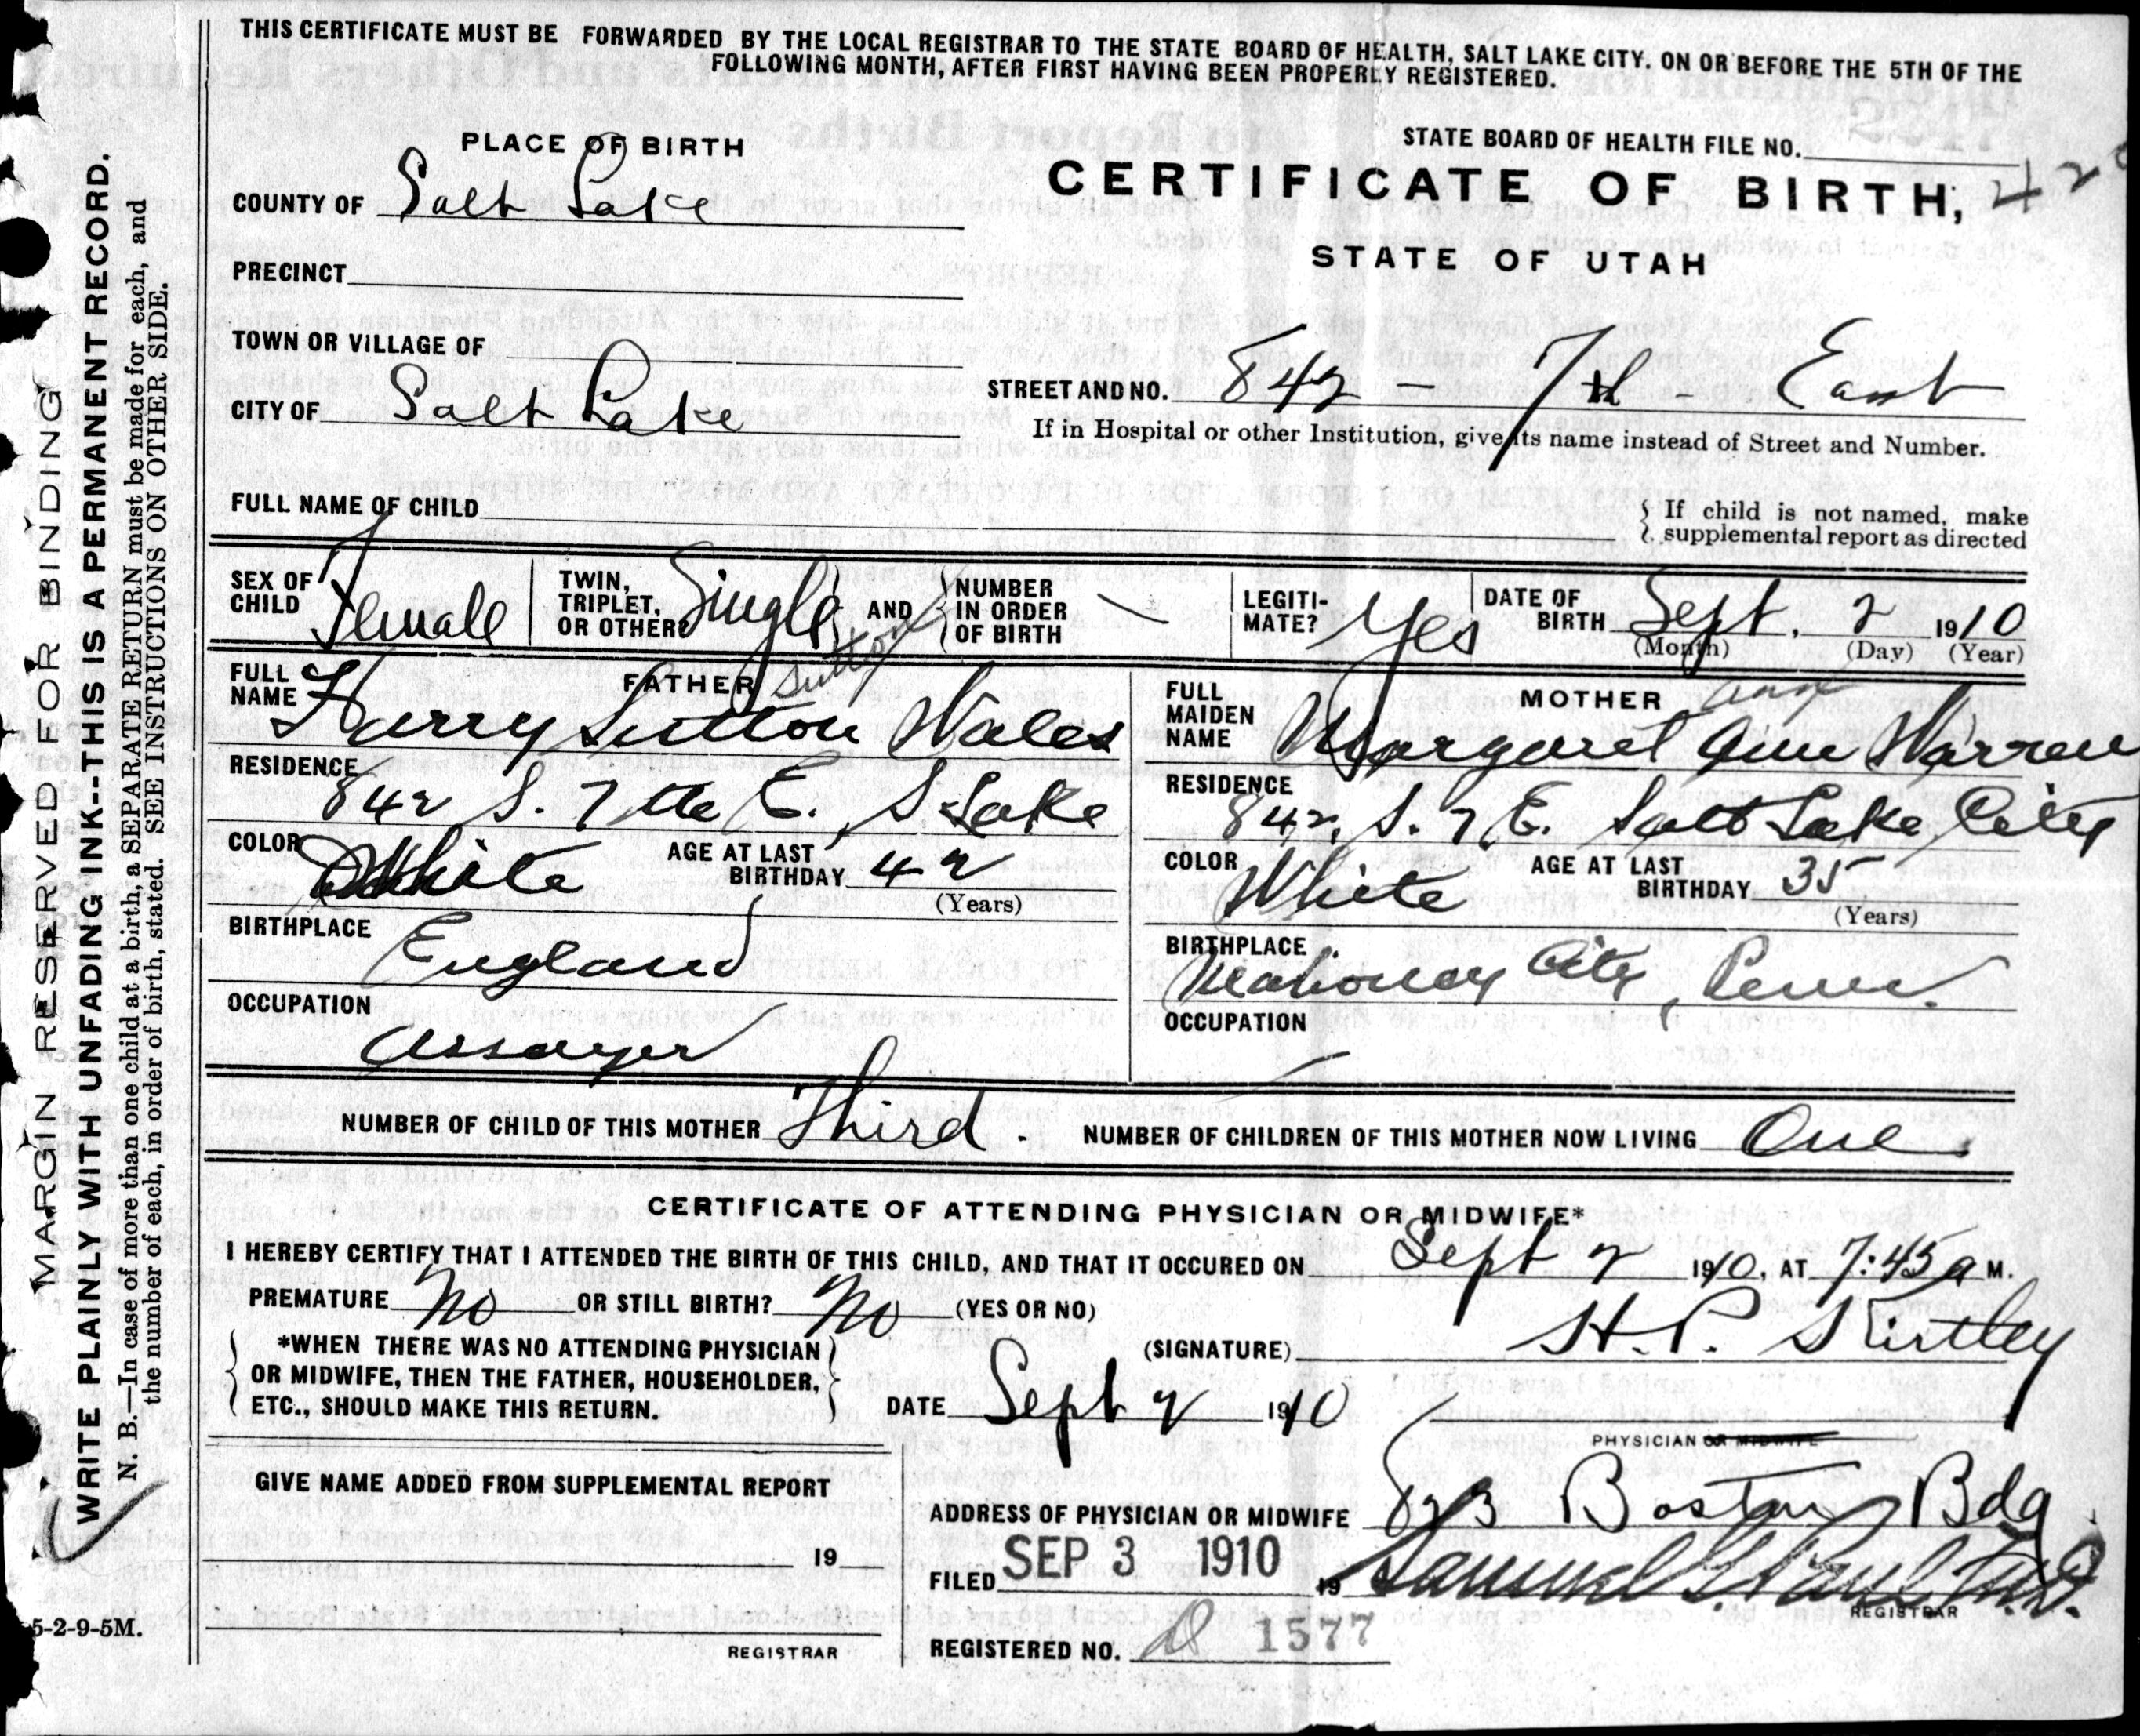 THIS CERTIFICATE MUST BE FORWARDED BY THE LOCAL REGISTRAR TO THE STATE BOARD OF HEALTH, SALT LAKE CITY. ON OR BEFORE THE 5TH OF THE
FOLLOWING MONTH, AFTER FIRST HAVING BEEN PROPERLY REGISTERED.
MARGIN RESERVED FOR BINDING
WRITE PLAINLY WITH UNFADING INK--THIS IS A PERMANENT RECORD.
N. B.—In case of more than one child at a birth, a SEPARATE RETURN must be made for each, and
the number of each, in order of birth, stated. SEE INSTRUCTIONS ON OTHER SIDE.
PLACE OF BIRTH
STATE BOARD OF HEALTH FILE NO.
CERTIFICATE OF BIRTH,
STATE OF UTAH
COUNTY OF Salt Lake
PRECINCT
TOWN OR VILLAGE OF
CITY OF Salt Lake
STREET AND NO. 842 - 7th - East
If in Hospital or other Institution, give its name instead of Street and Number.
FULL NAME OF CHILD
If child is not named, make
supplemental report as directed
SEX OF CHILD Female
TWIN, TRIPLET, OR OTHER Single AND NUMBER IN ORDER OF BIRTH —
LEGITIMATE? Yes
DATE OF BIRTH Sept. 2 1910
(Month) (Day) (Year)
FATHER Sutton
FULL NAME Harry Sutton Wales
RESIDENCE 842 S. 7the E. S Lake
COLOR White AGE AT LAST BIRTHDAY 42
(Years)
BIRTHPLACE England
OCCUPATION assayer
MOTHER
FULL MAIDEN NAME Margaret Ann Warren
RESIDENCE 842 S. 7 E. Salt Lake City
COLOR White AGE AT LAST BIRTHDAY 35
(Years)
BIRTHPLACE Mahoney City, Penn.
OCCUPATION —
NUMBER OF CHILD OF THIS MOTHER Third. NUMBER OF CHILDREN OF THIS MOTHER NOW LIVING One.
CERTIFICATE OF ATTENDING PHYSICIAN OR MIDWIFE*
I HEREBY CERTIFY THAT I ATTENDED THE BIRTH OF THIS CHILD, AND THAT IT OCCURED ON Sept 2 1910, AT 7:45 a M.
PREMATURE No OR STILL BIRTH? No (YES OR NO)
*WHEN THERE WAS NO ATTENDING PHYSICIAN
OR MIDWIFE, THEN THE FATHER, HOUSEHOLDER,
ETC., SHOULD MAKE THIS RETURN.
(SIGNATURE) H. P. Kirtley
DATE Sept 2 1910
PHYSICIAN OR MIDWIFE
GIVE NAME ADDED FROM SUPPLEMENTAL REPORT
19
REGISTRAR
ADDRESS OF PHYSICIAN OR MIDWIFE 823 Boston Bdg
FILED SEP 3 1910 19 Samuel G. Paul M.D.
REGISTRAR
REGISTERED NO. D 1577
5-2-9-5M.